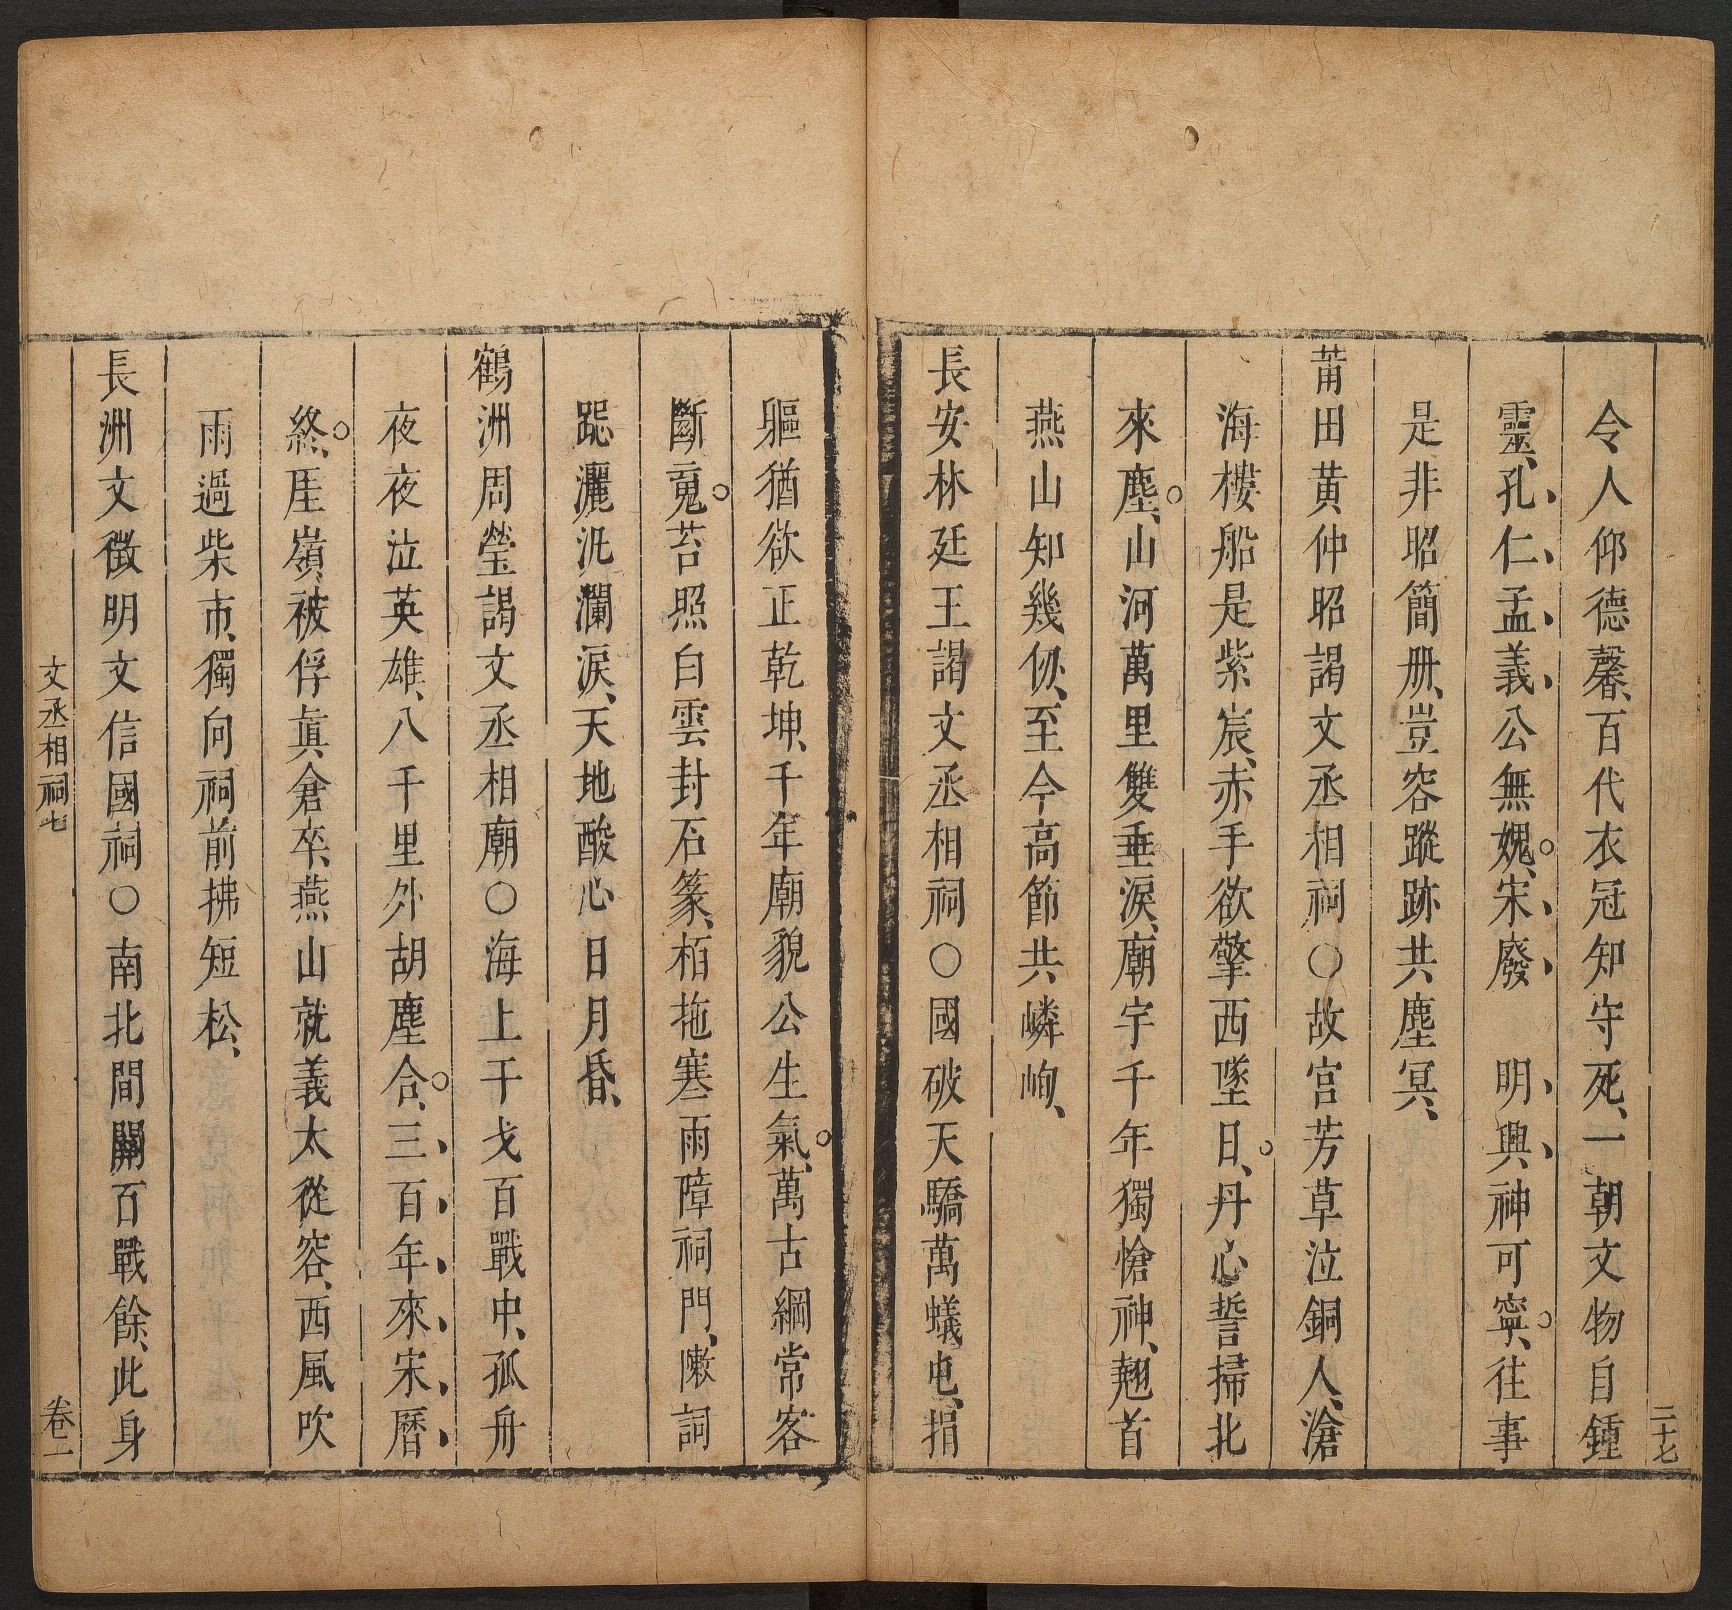 二十七
令人仰德馨、百代衣冠知守死、一朝文物自鍾
靈、孔仁孟義公無媿、宋廢　明興神可寧、往事
是非昭簡册、豈容蹤跡共塵冥、
莆田黃仲昭謁文丞相祠○故宮芳草泣銅人、滄
海樓船是紫宸、赤手欲擎西墜日、丹心誓掃北
來塵、山河萬里雙垂淚、廟宇千年獨愴神、翹首
燕山知幾仭、至今高節共嶙峋、
長安林廷王謁文丞相祠○國破天驕萬蟻屯、捐
軀猶欲正乾坤、千年廟貌公生氣、萬古綱常客
斷䰟、苔照白雲封石篆、栢拖寒雨障祠門、陳詞
跽灑汍瀾淚、天地酸心日月昏、
鶴洲周瑩謁文丞相廟○海上干戈百戰中、孤舟
夜夜泣英雄、八千里外胡塵合、三百年來宋曆
終、厓嶺被俘真倉卒、燕山就義太從容、西風吹
雨過柴市、獨向祠前拂短松、
長洲文徵明文信國祠○南北間關百戰餘、此身
文丞相祠七
卷二